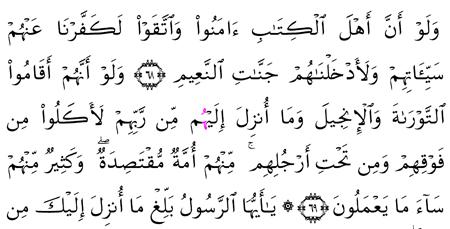 وَلَوْ أَنَّ أَهْلَ ٱلْكِتَٰبِ ءَامَنُوا۟ وَٱتَّقَوْا۟ لَكَفَّرْنَا عَنْهُمْ
سَيِّـَٔاتِهِمْ وَلَأَدْخَلْنَٰهُمْ جَنَّٰتِ ٱلنَّعِيمِ ۝٦٨ وَلَوْ أَنَّهُمْ أَقَامُوا۟
ٱلتَّوْرَىٰةَ وَٱلْإِنجِيلَ وَمَا أُنزِلَ إِلَيْهُم مِّن رَّبِّهِمْ لَأَكَلُوا۟ مِن
فَوْقِهِمْ وَمِن تَحْتِ أَرْجُلِهِم ۚ مِّنْهُمْ أُمَّةٌ مُّقْتَصِدَةٌ ۖ وَكَثِيرٌ مِّنْهُمْ
سَآءَ مَا يَعْمَلُونَ ۝٦٩ ۞ يَٰٓأَيُّهَا ٱلرَّسُولُ بَلِّغْ مَا أُنزِلَ إِلَيْكَ مِن